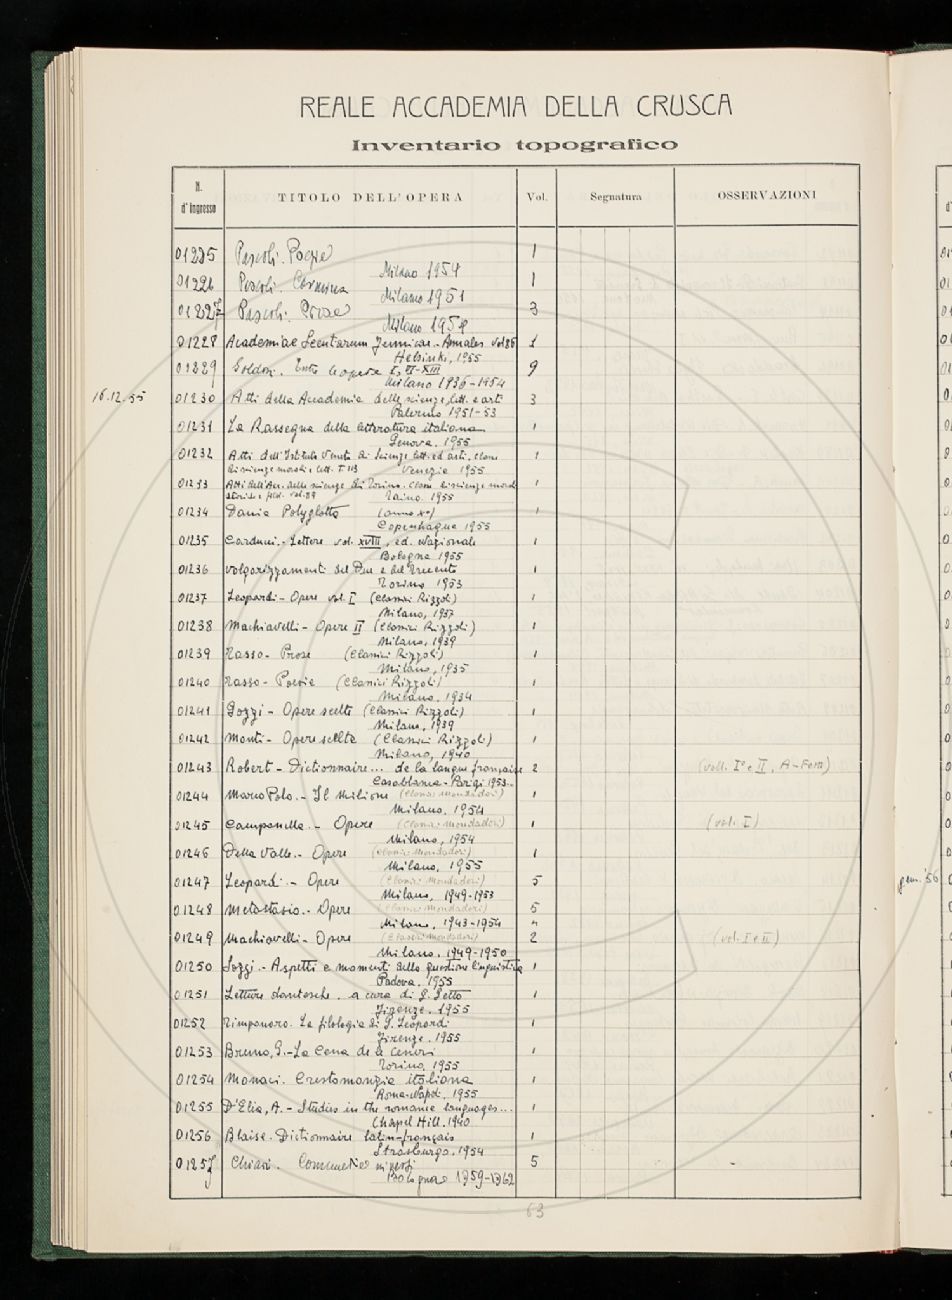 REALE ACCADEMIA DELLA CRUSCA
Inventario topografico
N. d'Ingresso TITOLO DELL'OPERA Vol. Segnatura OSSERVAZIONI
01225 Pascoli. Poesie 1
Milano 1954
01226 Pascoli. Carmina 1
Milano 1951
01227 Pascoli. Prose 3
Milano 1952
01228 Academiae Scientiarum Fennicae - Annales vol 86 1
Helsinki, 1955
01229 Goldoni. Tutte le opere I, II-XIII 9
Milano 1936-1954
16.12.55 01230 Atti della Accademia delle scienze, lett. e arti 3
Palermo 1951-53
01231 La Rassegna della letteratura italiana 1
Genova. 1955
01232 Atti dell'Istituto Veneto di Scienze lett. ed arti. classe 1
di scienze morali e lett. T. 113 Venezia 1955
01233 Atti dell'Acc. delle scienze di Torino. Classe di scienze moral 1
storiche e filol. vol. 89 Torino. 1955
01234 Dania Polyglotta (anno Xº) 1
Copenhague 1955
01235 Carducci.- Lettere vol. XVIII, ed. Nazionale 1
Bologna 1955
01236 Volgarizzamenti del Due e del Trecento 1
Torino 1953
01237 Leopardi - Opere vol. I (Classici Rizzoli) 1
Milano, 1937
01238 Machiavelli - Opere II (Classici Rizzoli) 1
Milano, 1939
01239 Tasso - Prose (Classici Rizzoli) 1
Milano, 1935
01240 Tasso - Poesie (Classici Rizzoli) 1
Milano. 1934
01241 Gozzi - Opere scelte (Classici Rizzoli) 1
Milano, 1939
01242 Monti - Opere scelte (Classici Rizzoli) 1
Milano, 1940
01243 Robert - Dictionnaire... de la langue française 2 (voll. Iº e II, A-Fem)
Casablanca - Parigi 1953..
01244 Marco Polo. - Il Milione (Classici Mondadori) 1
Milano. 1954
01245 Campanella. - Opere (Classici Mondadori) 1 (vol. I)
Milano, 1954
01246 Della Valle. - Opere (Classici Mondadori) 1
Milano, 1955
01247 Leopardi. - Opere (Classici Mondadori) 5
Milano, 1949-1953
01248 Metastasio. - Opere (Classici Mondadori) 5
Milano, 1943-1954
01249 Machiavelli - Opere (Classici Mondadori) 2 (vol. I e II)
Milano. 1949-1950
01250 Sozzi. - Aspetti e momenti della questione linguistica 1
Padova. 1955
01251 Letture dantesche. a cura di G. Getto 1
Firenze. 1955
01252 Timpanaro. La filologia di G. Leopardi 1
Firenze. 1955
01253 Bruno, G. - La Cena de le ceneri 1
Torino, 1955
01254 Monaci. Crestomanzia italiana 1
Roma-Napoli, 1955
01255 D'Elia, A. - Studies in the romance languages... 1
Chapel Hill. 1940
01256 Blaise. Dictionnaire latin-français 1
Strasburgo. 1954
01257 Chiari. 5
Bologna 1959-1962
63
gen. '56